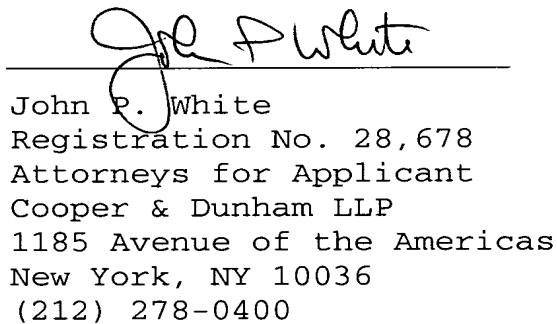 John P White
John P. White
Registration No. 28,678
Attorneys for Applicant
Cooper & Dunham LLP
1185 Avenue of the Americas
New York, NY 10036
(212) 278-0400